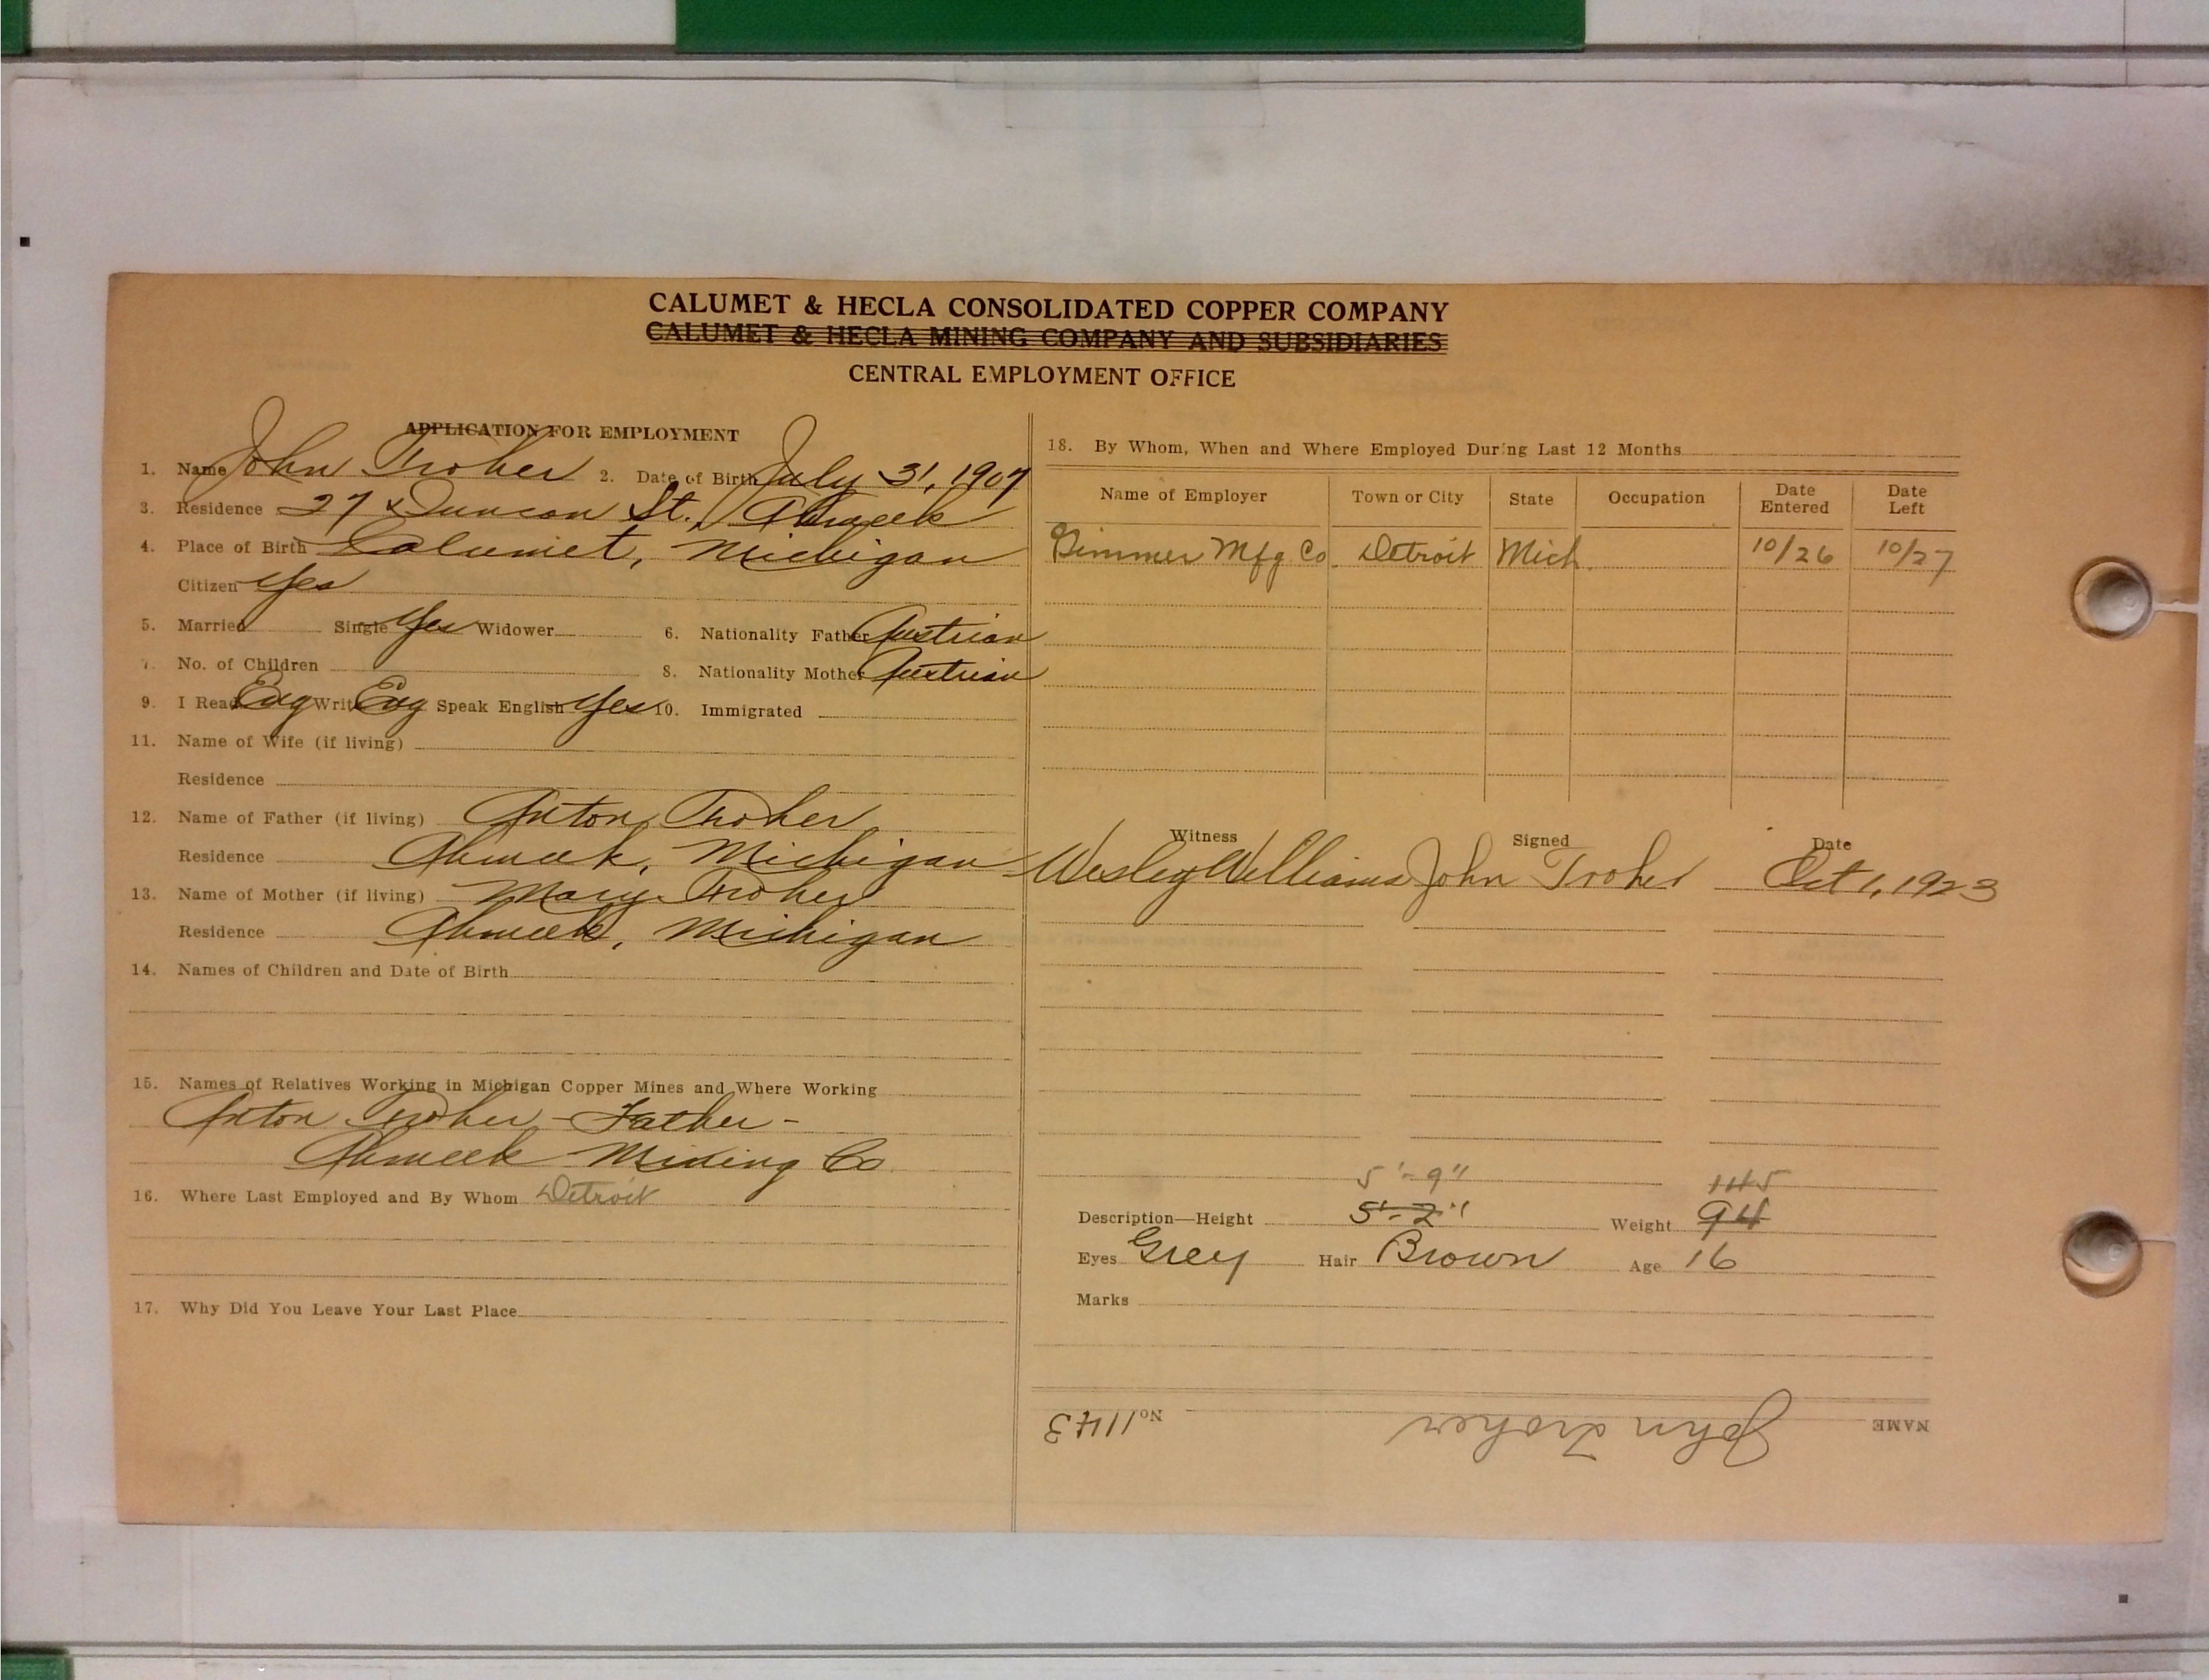 CALUMET & HECLA CONSOLIDATED COPPER COMPANY
CALUMET & HECLA MINING COMPANY AND SUBSIDIARIES
CENTRAL EMPLOYMENT OFFICE
APPLICATION FOR EMPLOYMENT
1. Name John Troher 2. Date of Birth July 31, 1907
3. Residence 27 Duncan St., Ahmeek
4. Place of Birth Calumet, Michigan
Citizen Yes
5. Married Single Yes Widower 6. Nationality Father Austrian
7. No. of Children 8. Nationality Mother Austrian
9. I Read Eng Write Eng Speak English Yes 10. Immigrated
11. Name of Wife (if living)
Residence
12. Name of Father (if living) Anton Troher
Residence Ahmeek, Michigan
13. Name of Mother (if living) Mary Troher
Residence Ahmeek, Michigan
14. Names of Children and Date of Birth
15. Names of Relatives Working in Michigan Copper Mines and Where Working
Anton Troher - Father -
Ahmeek Mining Co
16. Where Last Employed and By Whom Detroit
17. Why Did You Leave Your Last Place
18. By Whom, When and Where Employed During Last 12 Months
Name of Employer Town or City State Occupation Date Entered Date Left
Mfg Co. Detroit Mich. 10/26 10/27
Witness Signed Date
Wesley Williams John Troher Oct 1, 1923
5'-9" 145
Description—Height 5'-2" Weight 94
Eyes Grey Hair Brown Age 16
Marks
NAME John Troher No 1143